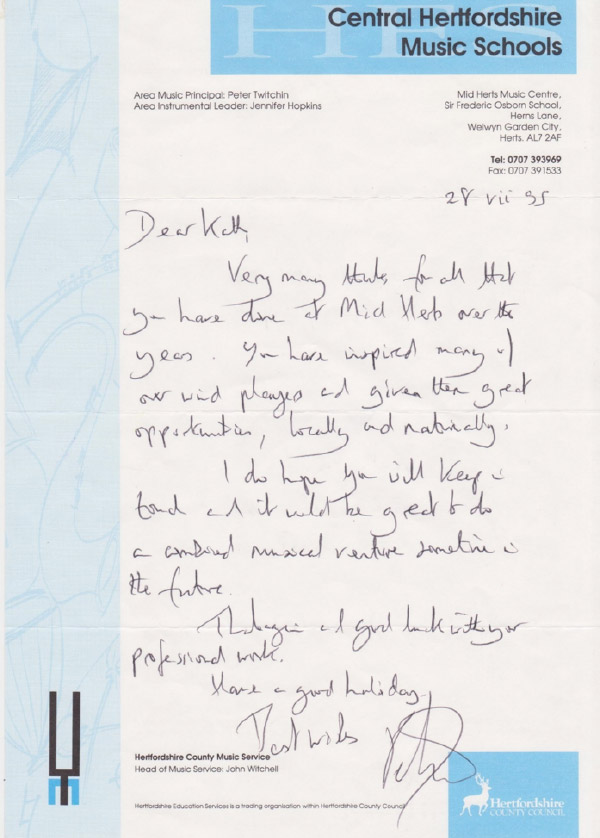 HES
Central Hertfordshire
Music Schools
Area Music Principal: Peter Twitchin
Area Instrumental Leader: Jennifer Hopkins
Mid Herts Music Centre,
Sir Frederic Osborn School,
Herns Lane,
Welwyn Garden City,
Herts. AL7 2AF
Tel: 0707 393969
Fax: 0707 391533
28 vii 95
Dear Kath,
Very many thanks for all that
you have done at Mid Herts over the
years. You have inspired many of
our wind players and given them great
opportunities, locally and nationally.
I do hope you will keep in
touch and it would be great to do
a combined musical venture sometime in
the future.
Thanks again and good luck with your
professional work.
Have a good holiday.
Best wishes
Peter
Hertfordshire County Music Service
Head of Music Service: John Witchell
Hertfordshire Education Services is a trading organisation within Hertfordshire County Council
Hertfordshire
COUNTY COUNCIL